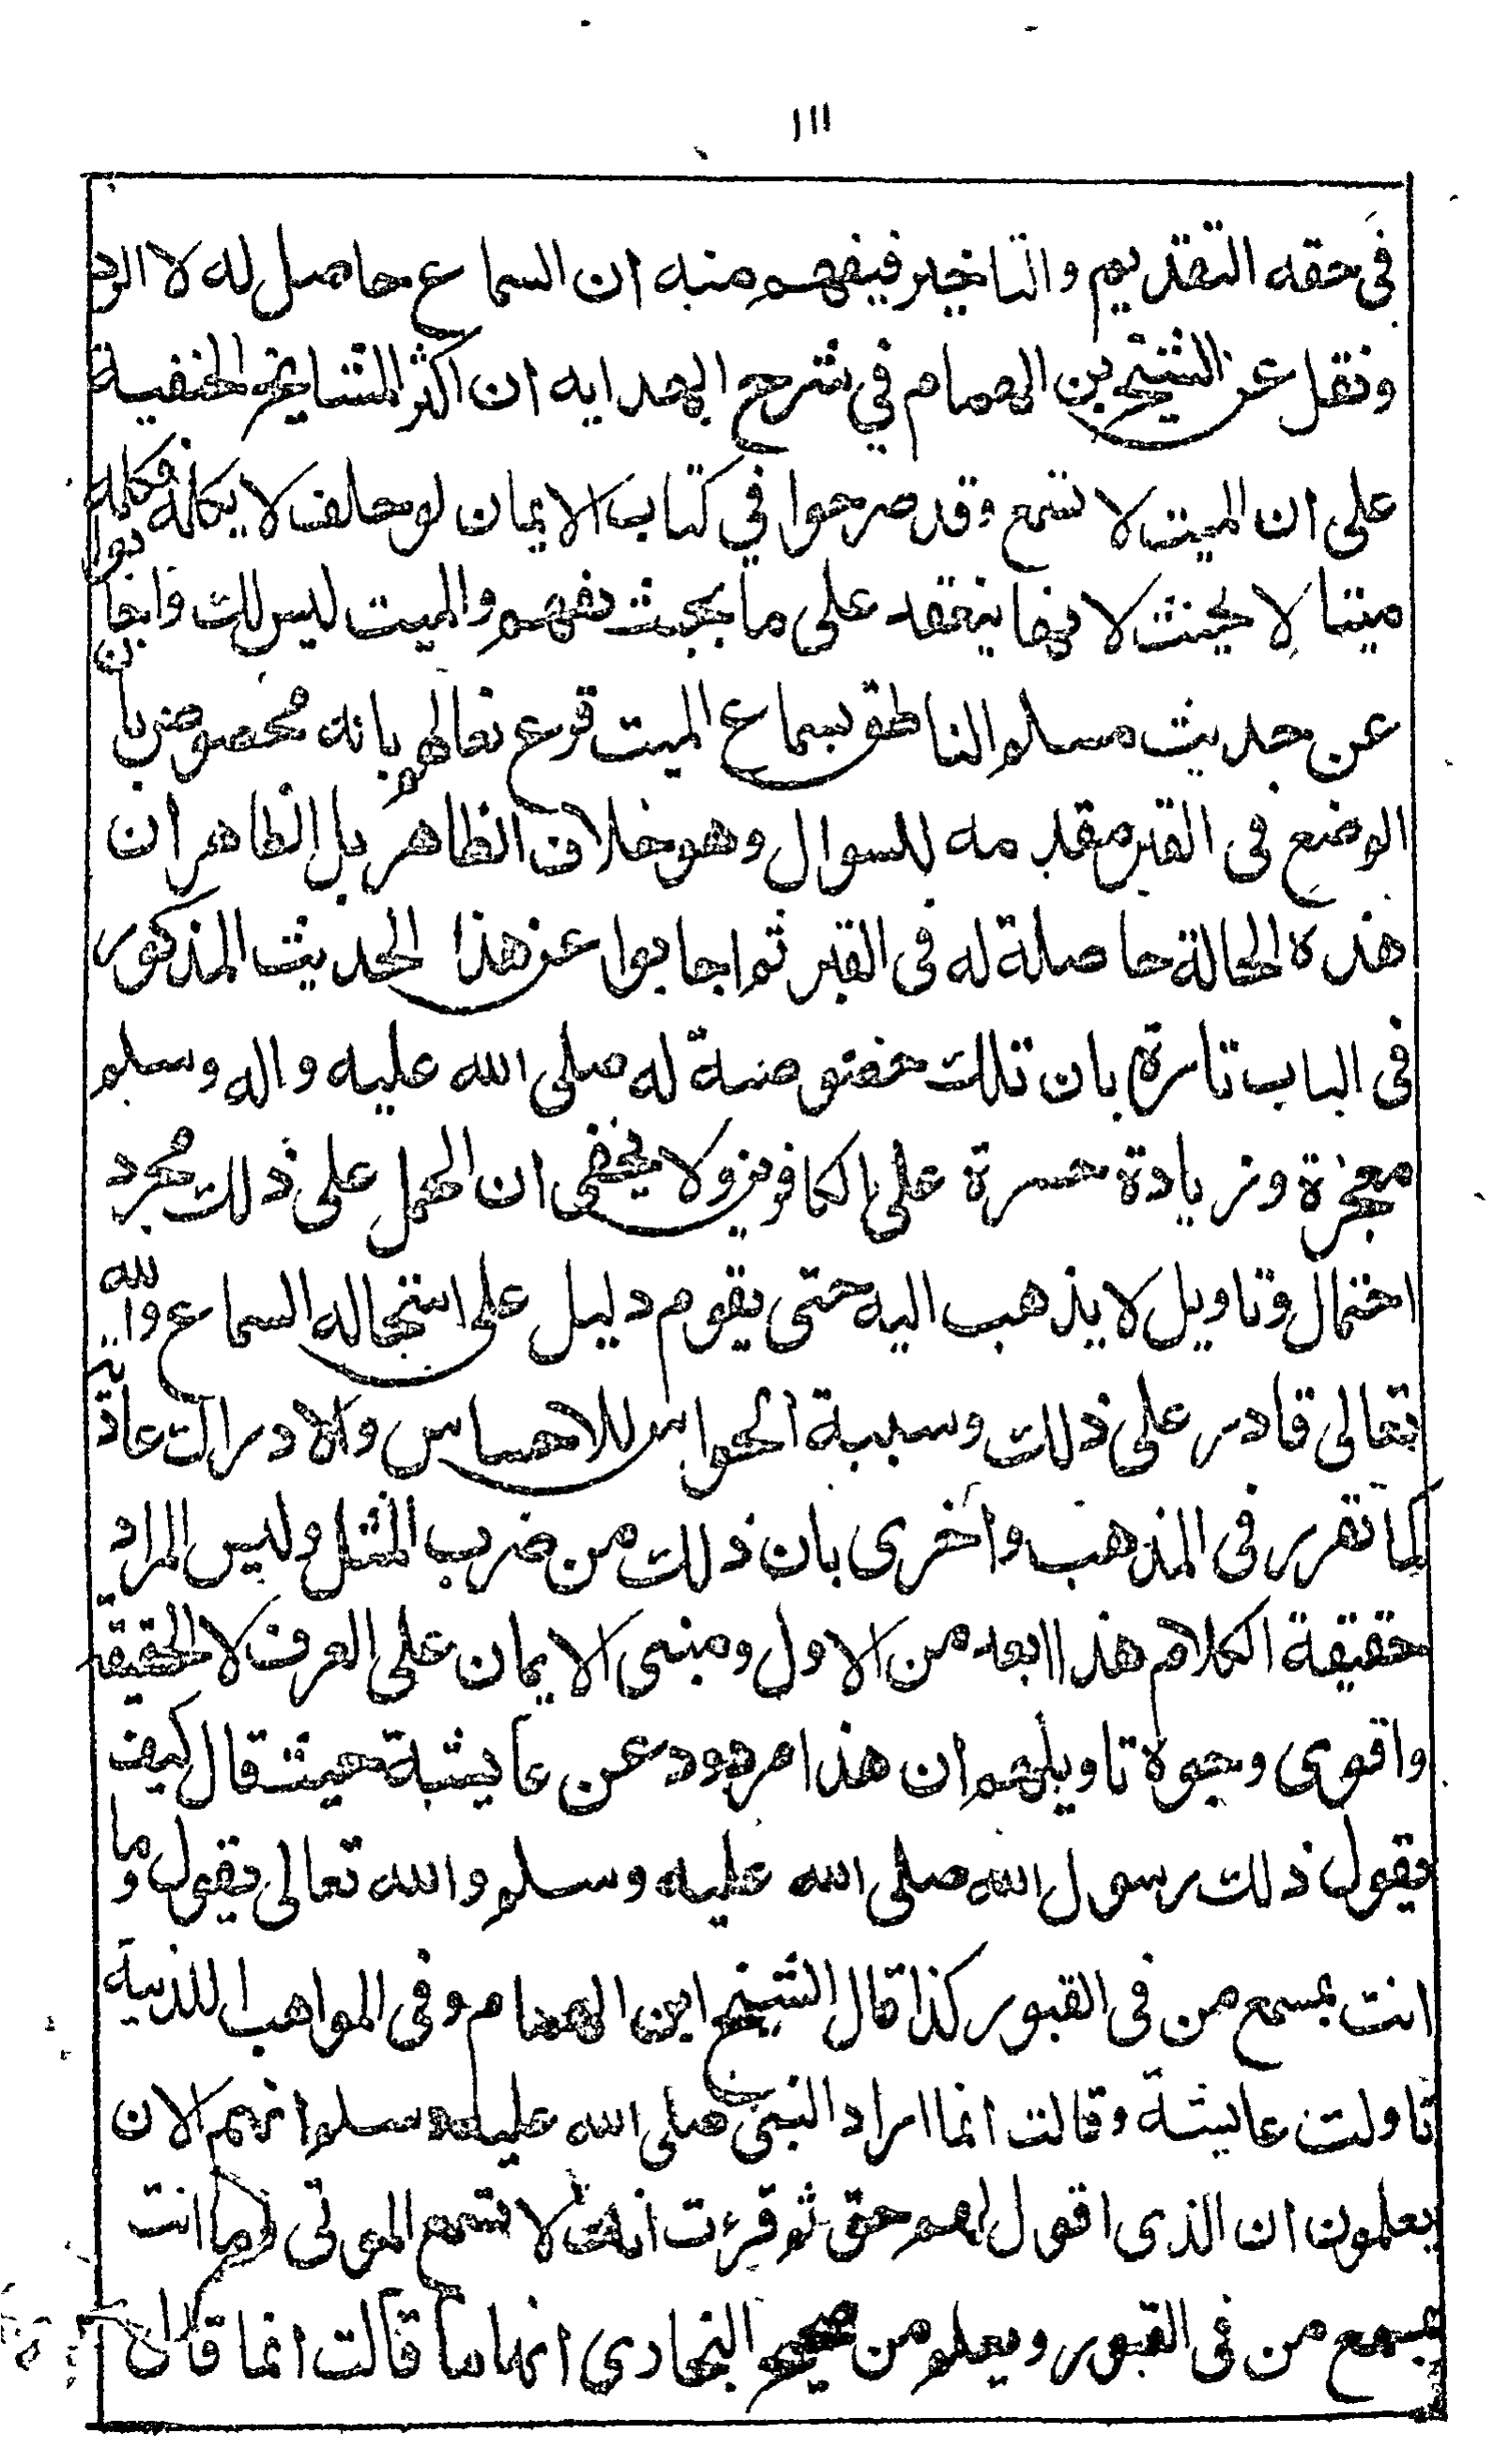 ١١١
فى حقه التقديم والتاخير فيفهم منه ان السماع حاصل له لا الرد
ونقل عن الشيخ بن الهمام في شرح الهدايه ان اكثر المشايخ الحنفية
على ان الميت لا تسمع وقد صرحوا في كتاب الايمان لو حلف لا يكلمه فكلمه
ميتا لا يحنث لانها ينعقد على ما بحيث يفهم والميت ليس كذلك واجابوا
عن حديث مسلم الناطق بسماع الميت قرع نعالهم بانه مخصوص بان
الوضع فى القبر مقدمه للسوال وهو خلاف الظاهر بل الظاهر ان
هذه الحالة حاصلة له فى القبر ثم اجابوا عن هذا الحديث المذكور
فى الباب تارة بان تلك مخصوصة له صلى الله عليه واله وسلم
معجزة وزيادة حسرة على الكافرين ولا يخفى ان الحمل على ذلك مجرد
احتمال وتاويل لا يذهب اليه حتى يقوم دليل على استحاله السماع والله
تعالى قادر على ذلك وسببية الحواس للاحساس والادراك عادية
كما تقرر فى المذهب واخرى بان ذلك من ضرب المثل وليس المراد
حقيقة الكلام هذا ابعد من الاول ومبنى الايمان على العرف لا الحقيقة
واقوى وجوه تاويلهم ان هذا مردود عن عايشة حيث قال كيف
يقول ذلك رسول الله صلى الله عليه وسلم والله تعالى يقول وما
انت بمسمع من فى القبور كذا قال الشيخ ابن الهمام وفى المواهب اللدنية
تاولت عايشة وقالت انما اراد النبى صلى الله عليه وسلم انهم الان
يعلمون ان الذى اقول لهم حق ثم قرءت انك لا تسمع الموتى وما انت
بمسمع من فى القبور ويعلم من صحيح البخارى انها ما قالت انما قال